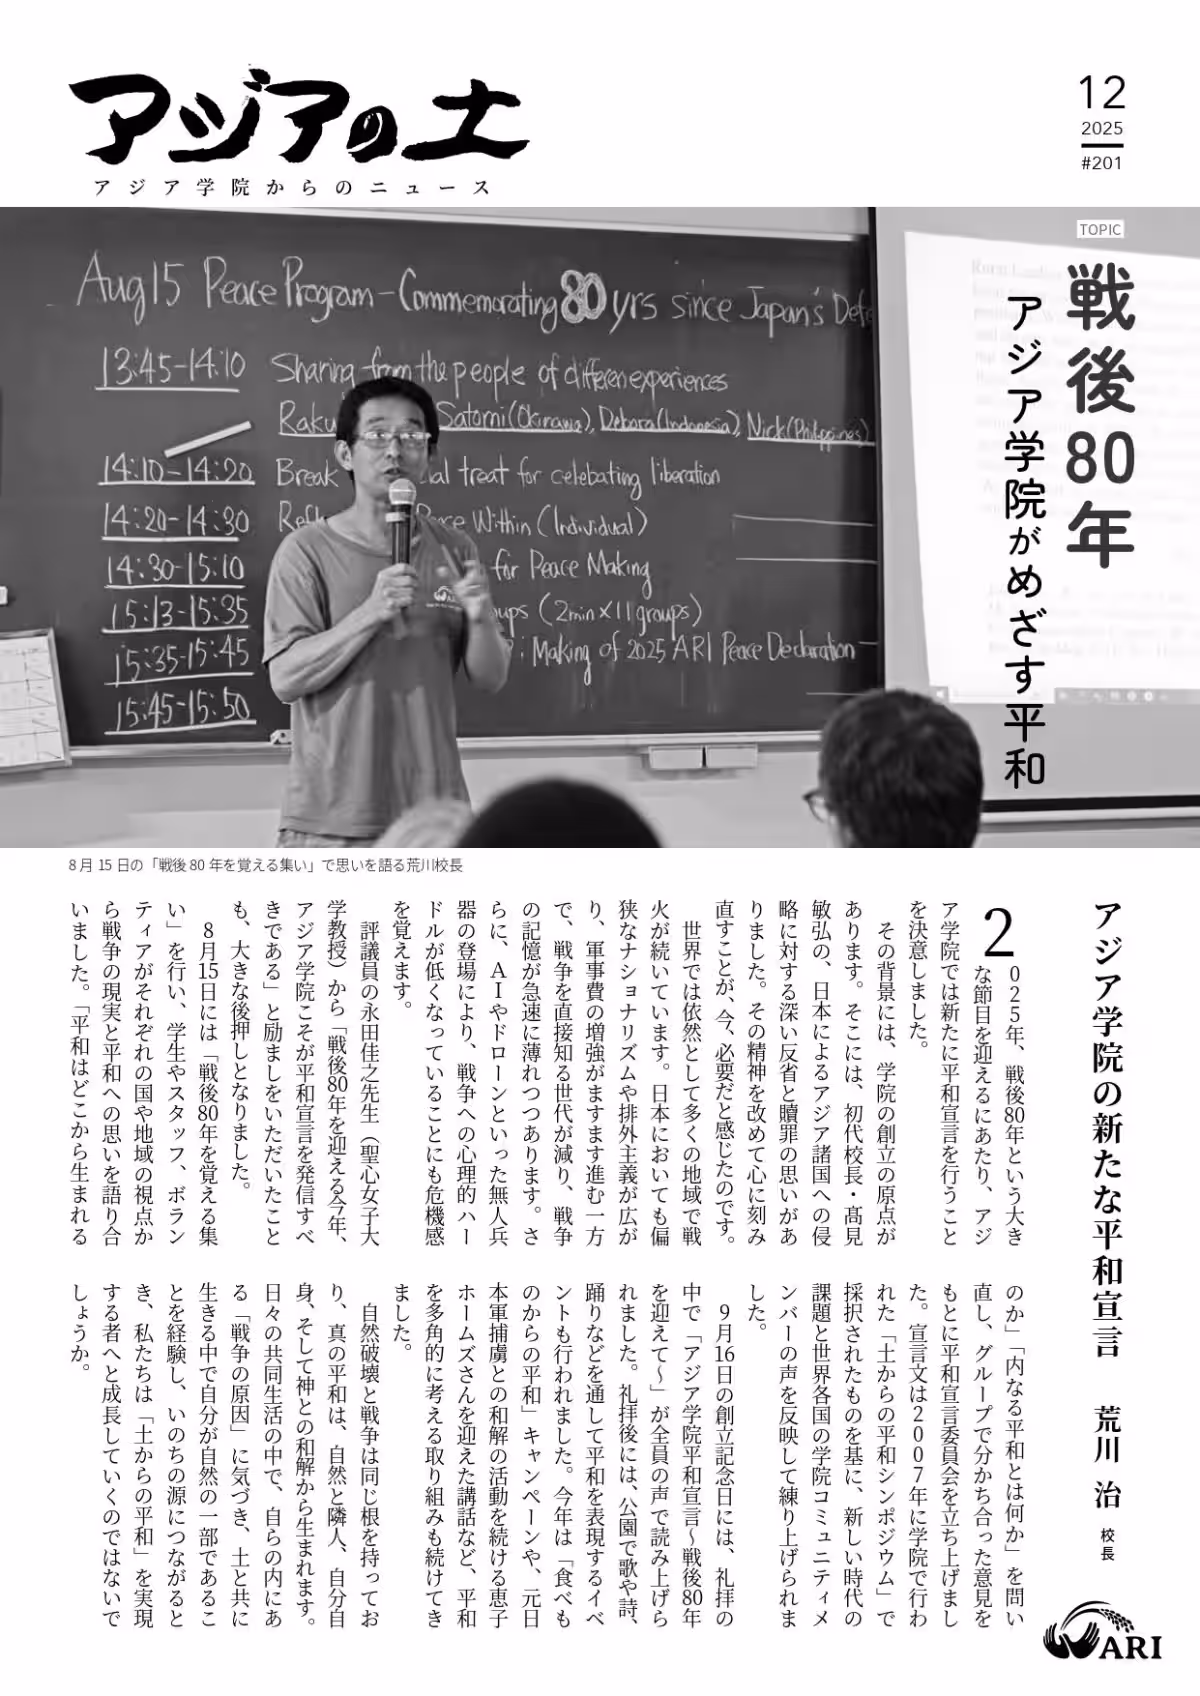 アジアの土
アジア学院からのニュース
12
2025
#201
TOPIC
戦後80年
アジア学院がめざす平和
Aug15 Peace Program-Commemorating 80 yrs since Japan's Defe
13:45-14:10 Sharing from the people of differen experiences
Raku Satomi (Okinawa), Debora (Indonesia), Nick (Philippines)
14:10-14:20 Break al treat for celebating liberation
14:20-14:30 Refl Peace Within (Individual)
14:30-15:10 for Peace Making
15:13-15:35 ups (2min×11groups)
15:35-15:45 : Making of 2025 ARI Peace Declaration
15:45-15:50
8月15日の「戦後80年を覚える集い」で思いを語る荒川校長
アジア学院の新たな平和宣言 荒川 治 校長
2025年、戦後80年という大き
な節目を迎えるにあたり、アジ
ア学院では新たに平和宣言を行うこと
を決意しました。
その背景には、学院の創立の原点が
あります。そこには、初代校長・髙見
敏弘の、日本によるアジア諸国への侵
略に対する深い反省と贖罪の思いがあ
りました。その精神を改めて心に刻み
直すことが、今、必要だと感じたのです。
世界では依然として多くの地域で戦
火が続いています。日本においても偏
狭なナショナリズムや排外主義が広が
り、軍事費の増強がますます進む一方
で、戦争を直接知る世代が減り、戦争
の記憶が急速に薄れつつあります。さ
らに、AIやドローンといった無人兵
器の登場により、戦争への心理的ハー
ドルが低くなっていることにも危機感
を覚えます。
評議員の永田佳之先生（聖心女子大
学教授）から「戦後80年を迎える今年、
アジア学院こそが平和宣言を発信すべ
きである」と励ましをいただいたこと
も、大きな後押しとなりました。
8月15日には「戦後80年を覚える集
い」を行い、学生やスタッフ、ボラン
ティアがそれぞれの国や地域の視点か
ら戦争の現実と平和への思いを語り合
いました。「平和はどこから生まれる
のか」「内なる平和とは何か」を問い
直し、グループで分かち合った意見を
もとに平和宣言委員会を立ち上げまし
た。宣言文は2007年に学院で行わ
れた「土からの平和シンポジウム」で
採択されたものを基に、新しい時代の
課題と世界各国の学院コミュニティメ
ンバーの声を反映して練り上げられま
した。
9月16日の創立記念日には、礼拝の
中で「アジア学院平和宣言～戦後80年
を迎えて～」が全員の声で読み上げら
れました。礼拝後には、公園で歌や詩、
踊りなどを通して平和を表現するイベ
ントも行われました。今年は「食べも
のからの平和」キャンペーンや、元日
本軍捕虜との和解の活動を続ける恵子
ホームズさんを迎えた講話など、平和
を多角的に考える取り組みも続けてき
ました。
自然破壊と戦争は同じ根を持ってお
り、真の平和は、自然と隣人、自分自
身、そして神との和解から生まれます。
日々の共同生活の中で、自らの内にあ
る「戦争の原因」に気づき、土と共に
生きる中で自分が自然の一部であるこ
とを経験し、いのちの源につながると
き、私たちは「土からの平和」を実現
する者へと成長していくのではないで
しょうか。
ARI